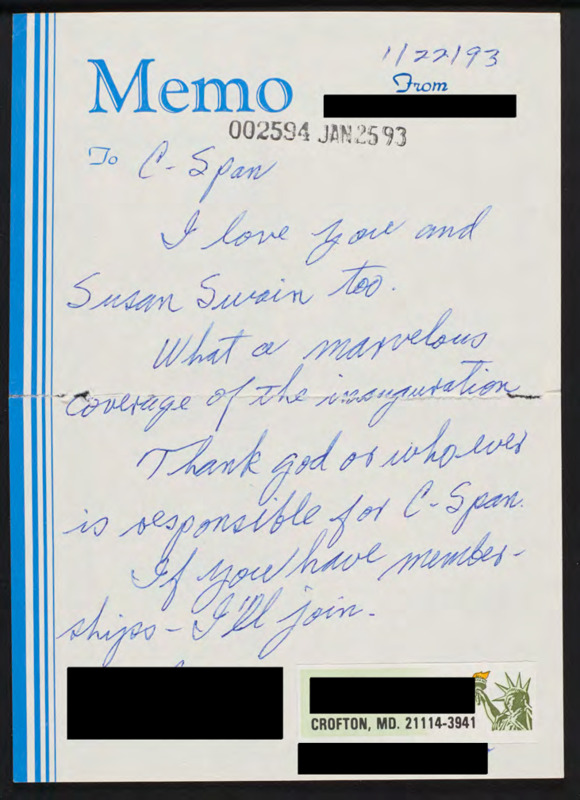 1/22/93
Memo
From
002594 JAN 25 93
To C-Span
I love you and
Susan Swain too.
What a marvelous
coverage of the inauguration
Thank god or whoever
is responsible for C-Span.
If you have member-
ships - I'll join.
CROFTON, MD. 21114-3941